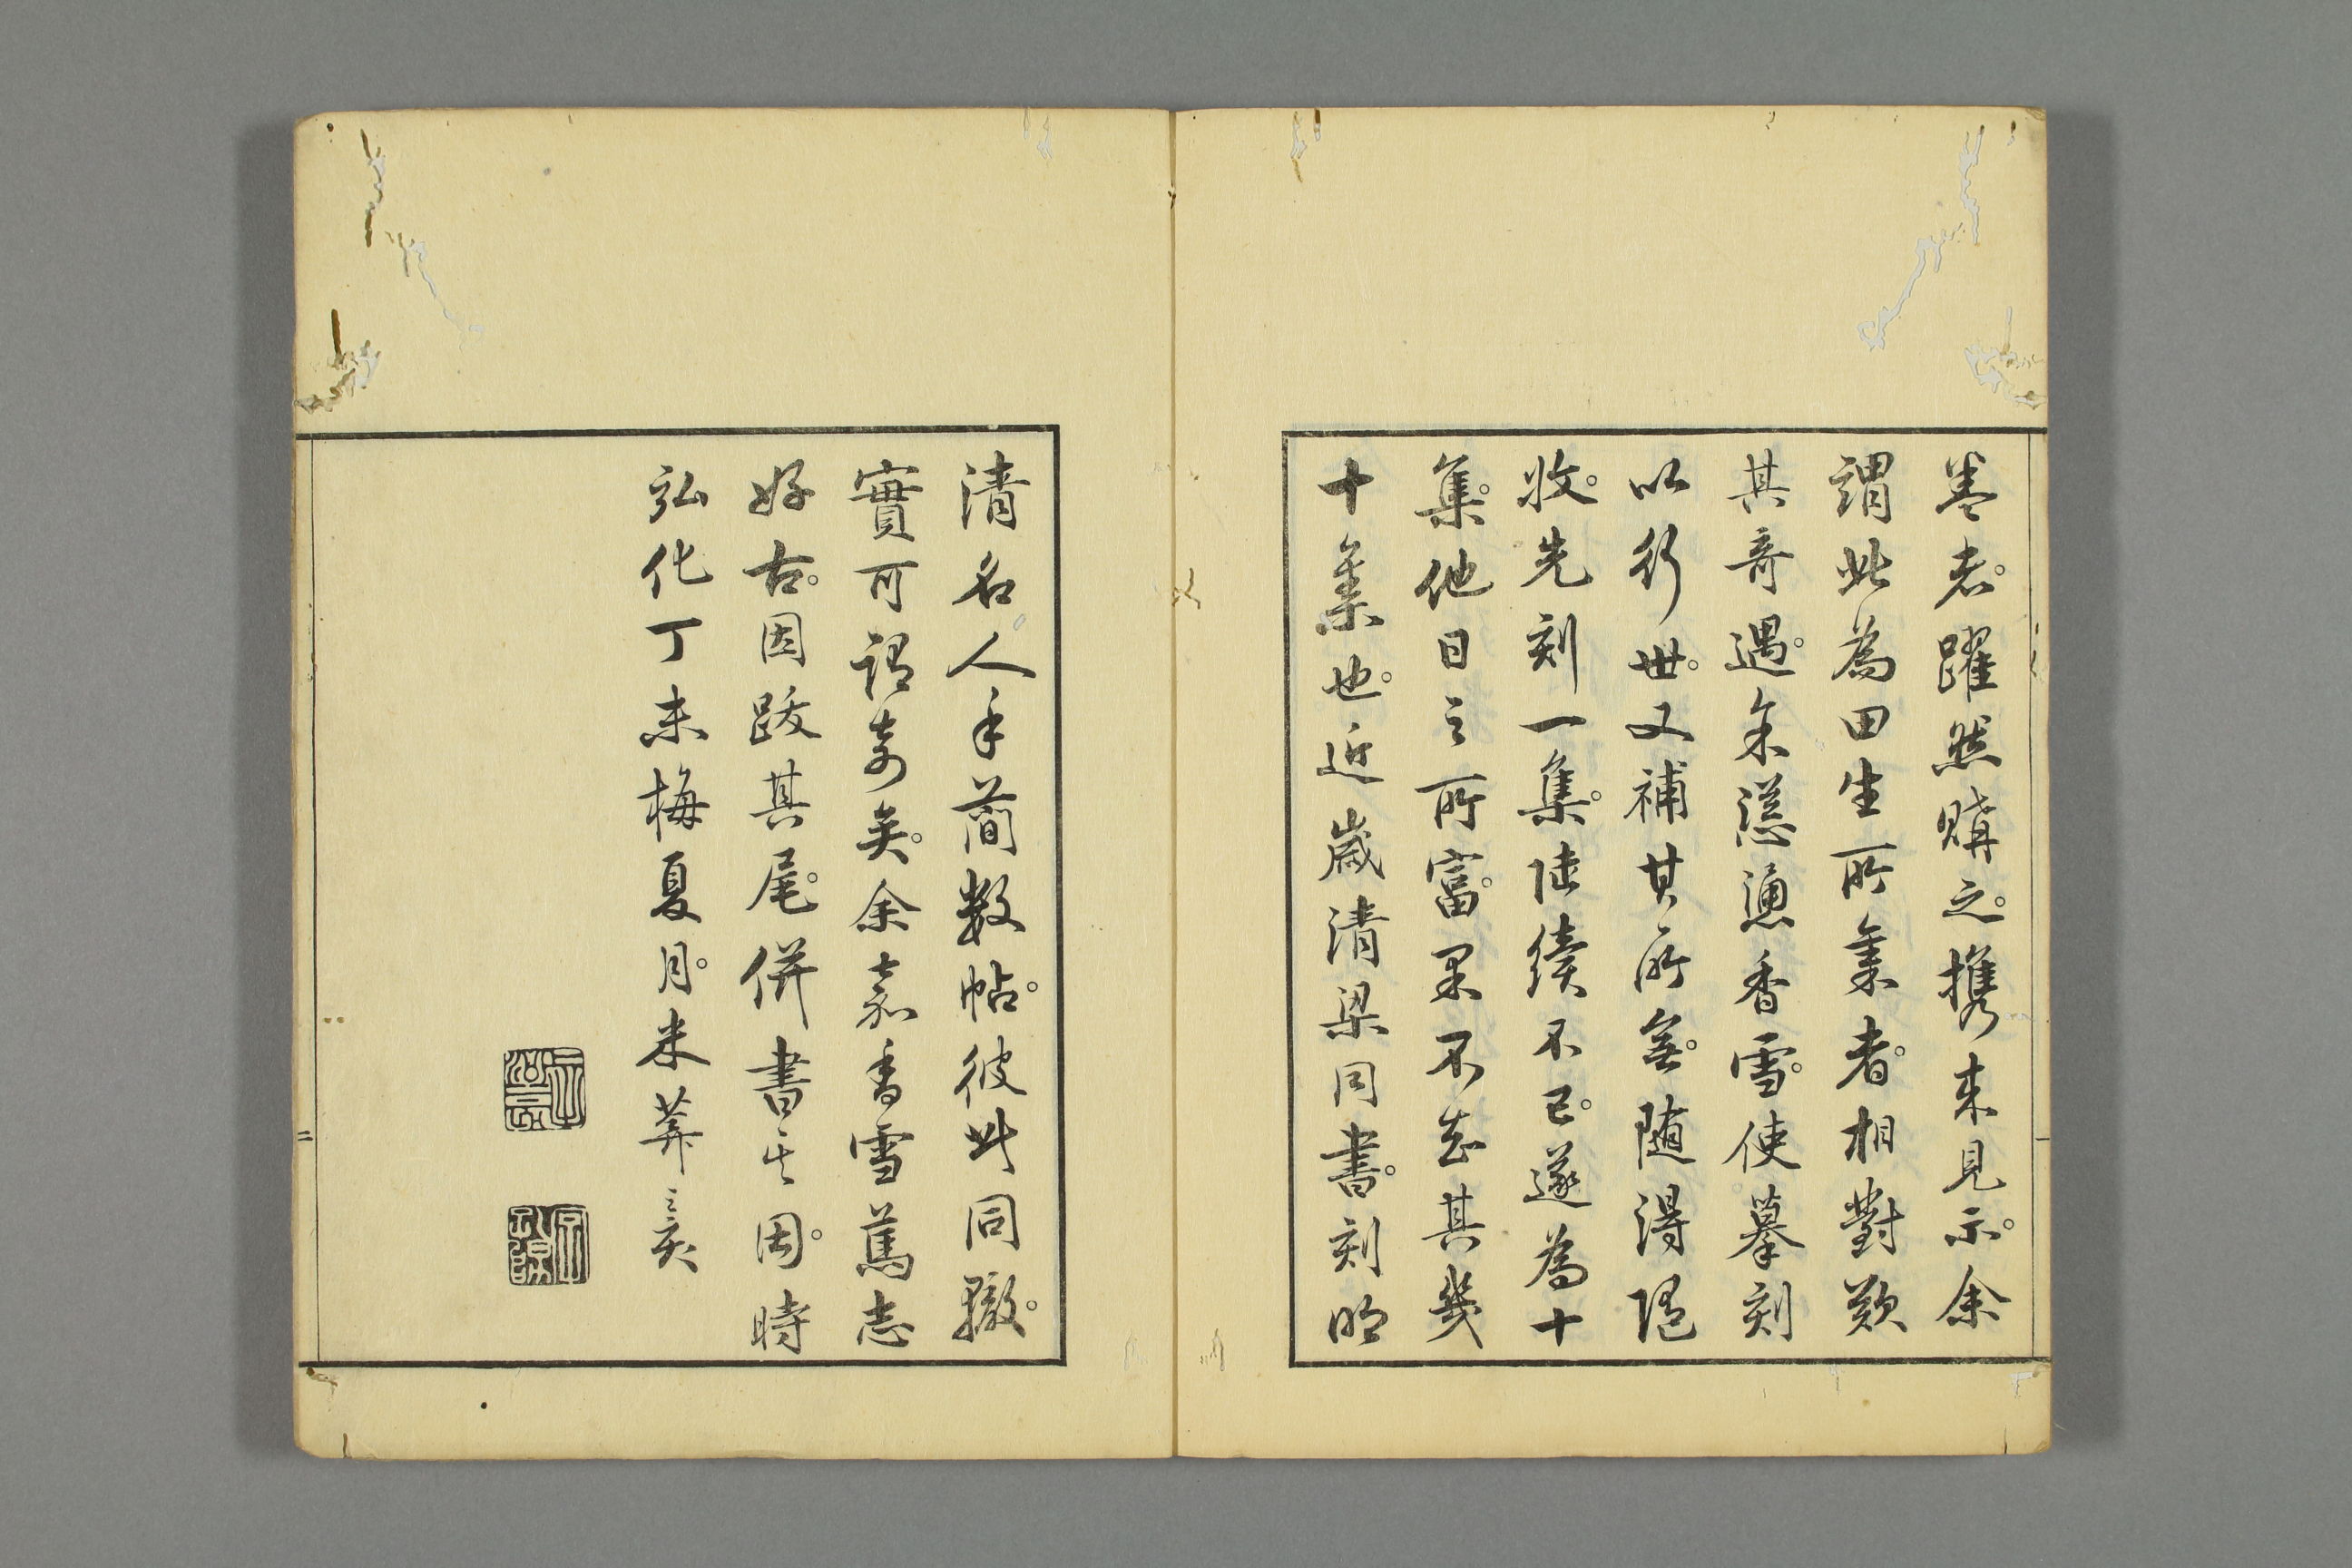 巻者。躍然購之。携来見示。余
謂此為田生所集者。相對歎
其奇遇。余慫慂香雪。使摹刻
以行世。又補其所無。随得随
收。先刻一集。陸續不已。遂為十
集。他日之所富。果不知其幾
十集也。近歲清梁同書。刻明
清名人手簡數帖。彼此同轍。
實可謂奇矣。余嘉香雪篤志
好古。因跋其尾。併書其因。時
弘化丁未梅夏月。米葊三亥